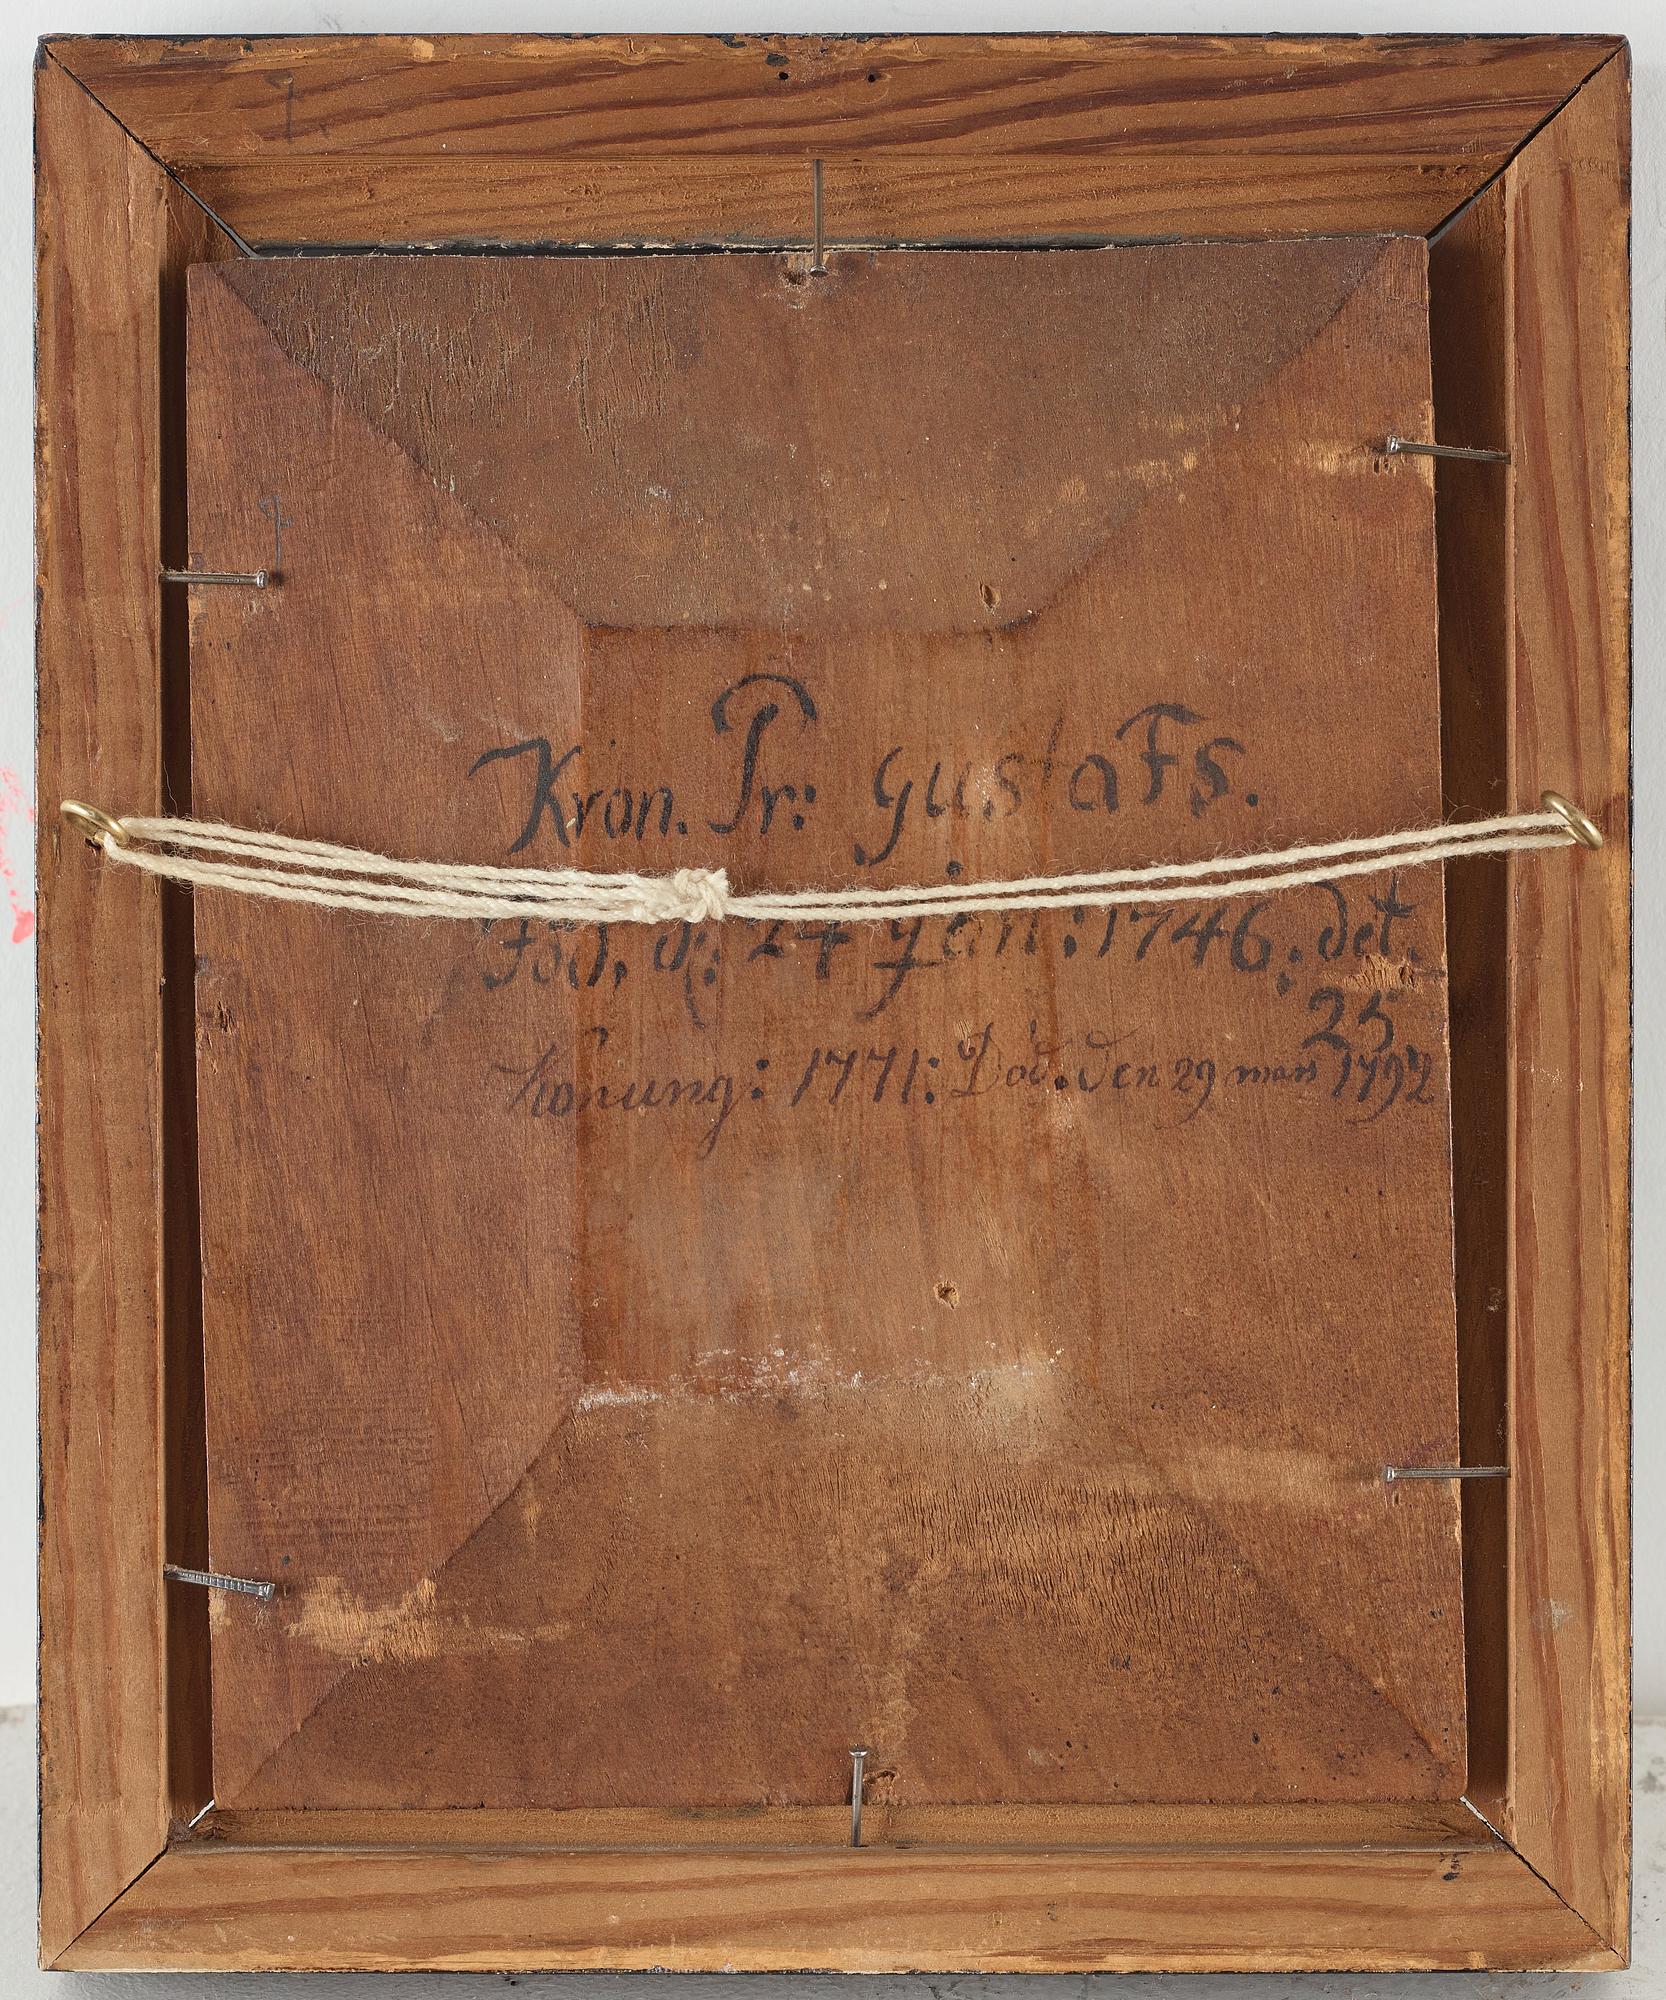 Kron. Pr: GustaFs.
Föd, d: 24 Jan: 1746: det.
25
Konung: 1771: Död. den 29 mars 1792
7.
7